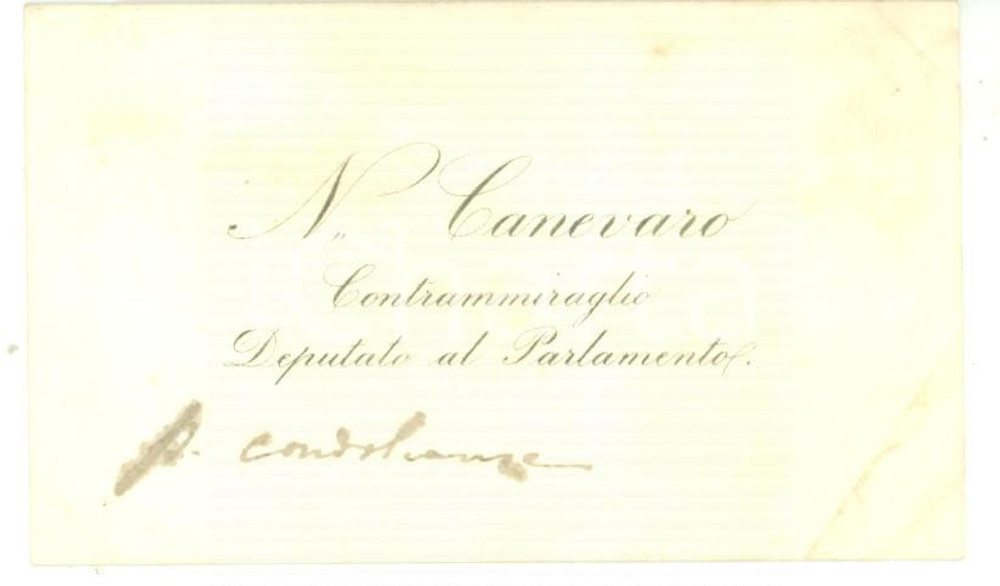 N. Canevaro
Contrammiraglio
Deputato al Parlamento.
p. condoglianze